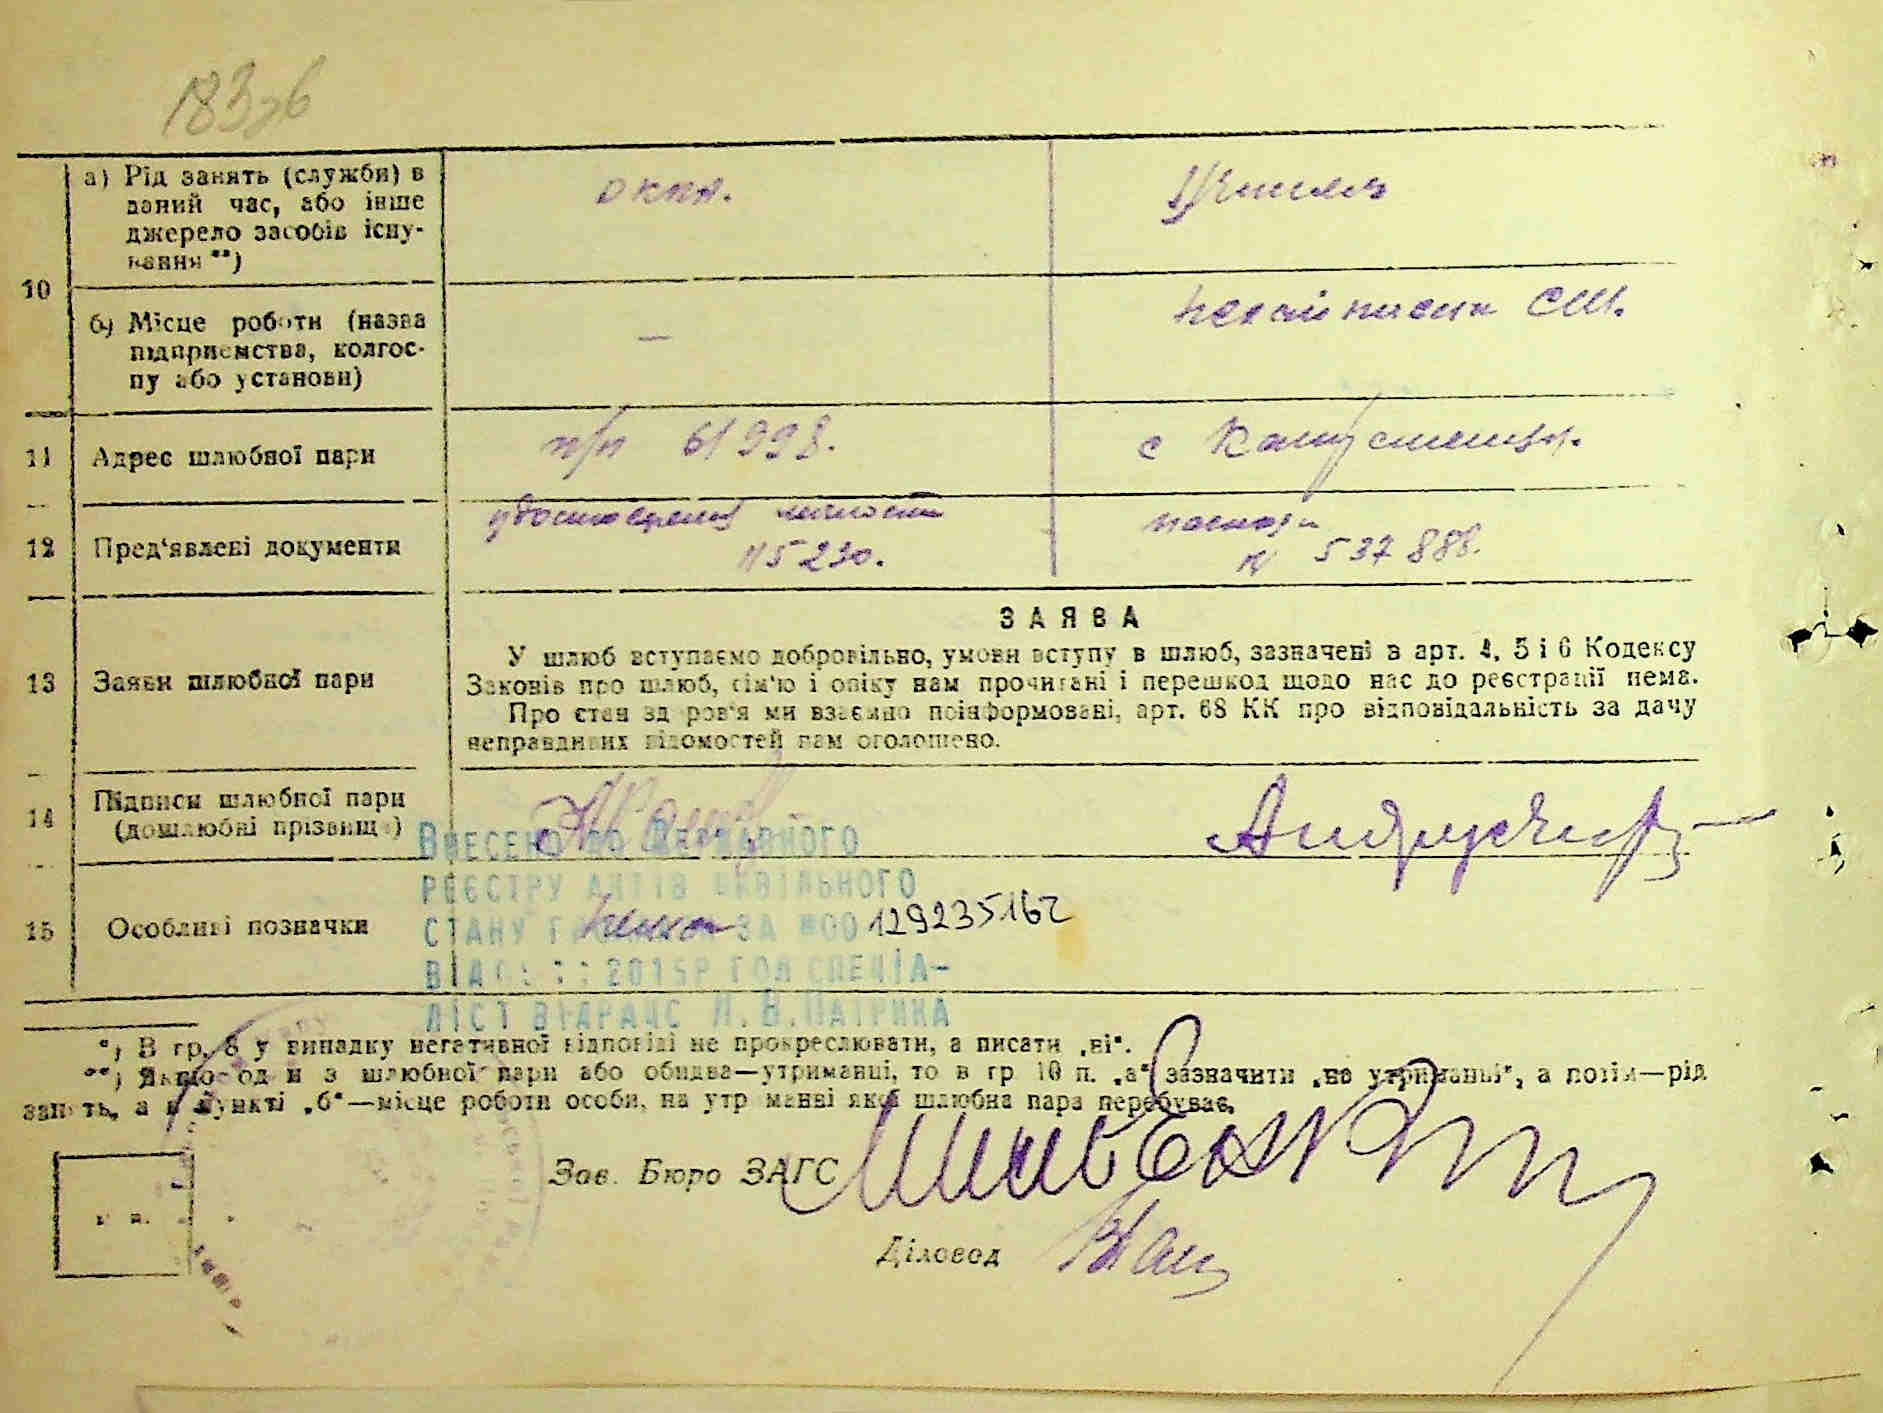 183зв
а) Рід занять (служби) в
даний час, або інше
джерело засобів існу-
вання **)
Учитель
10
б) Місце роботи (назва
підприємства, колгос-
пу або установи)
—
СШ.
11 Адрес шлюбної пари
п/п 61998.
с
12 Пред'явлені документи
удостоверения личности
№5230.
паспорт
N 537888.
13 Заяви шлюбної пари
ЗАЯВА
У шлюб вступаємо добровільно, умови вступу в шлюб, зазначені в арт. 4, 5 і 6 Кодексу
Законів про шлюб, сім'ю і опіку нам прочитані і перешкод щодо нас до реєстрації нема.
Про стан здоров'я ми взаємно поінформовані, арт. 68 КК про відповідальність за дачу
неправдивих відомостей нам оголошено.
14 Підписи шлюбної пари
(дошлюбні прізвища)
Внесено до Державного
реєстру актів цивільного
стану громадян за №00129235162
2015р гол специа-
ліст ВДРАЦС
15 Особливі позначки
*) В гр. 8 у випадку негативної відповіді не прокреслювати, а писати „ні“.
**) Якщо один з шлюбної пари або обидва—утриманці, то в гр 10 п. „а“ зазначити „на утриманні“, а потім—рід
занять, а в пункті „б“—місце роботи особи, на утриманні якої шлюбна пара перебуває.
Зав. Бюро ЗАГС
Діловод